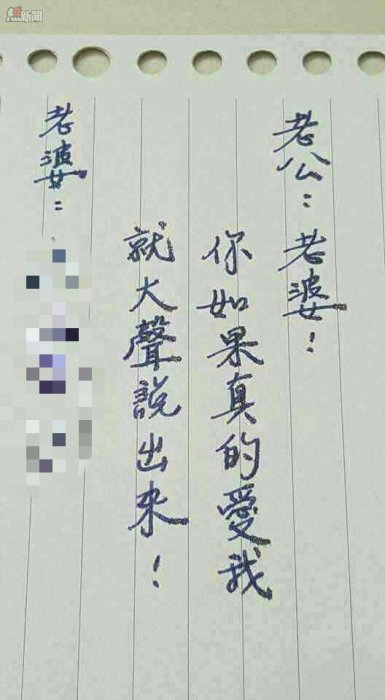 焦新聞
老公：老婆！
你如果真的愛我
就大聲說出來！
老婆：